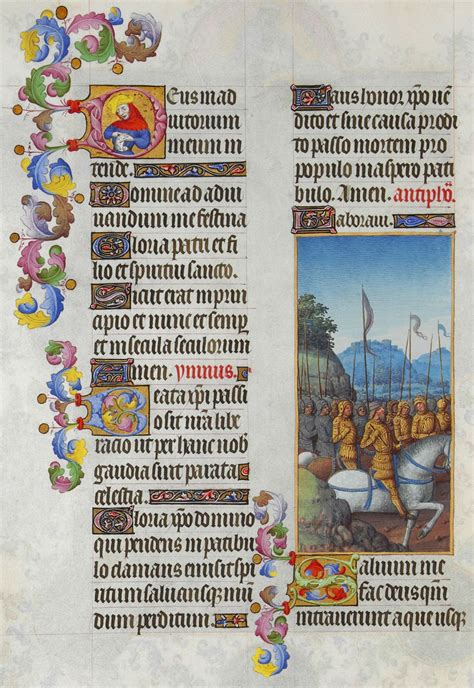 Deus in ad
iutorium
meum in
tende.
Domine ad adiu
uandum me festina
Gloria patri et fi
lio et spiritui sancto.
Sicut erat in prin
cipio et nunc et semper
et in secula seculorum
Amen. ymnus.
Beata xpi passi
o sit nra libe
racio ut per hanc nob
gaudia sint parata
celestia.
Gloria xpo domino
qui pendens in patibu
lo clamans emisit spi
tum mun
dum perditum.
Laus honor xpo uē
dito et sine causa prodi
to passo mortem pro
populo in aspero pati
bulo. Amen. antiph
Laboraui
Saluum me
fac deus qm
intrauerunt aque usq